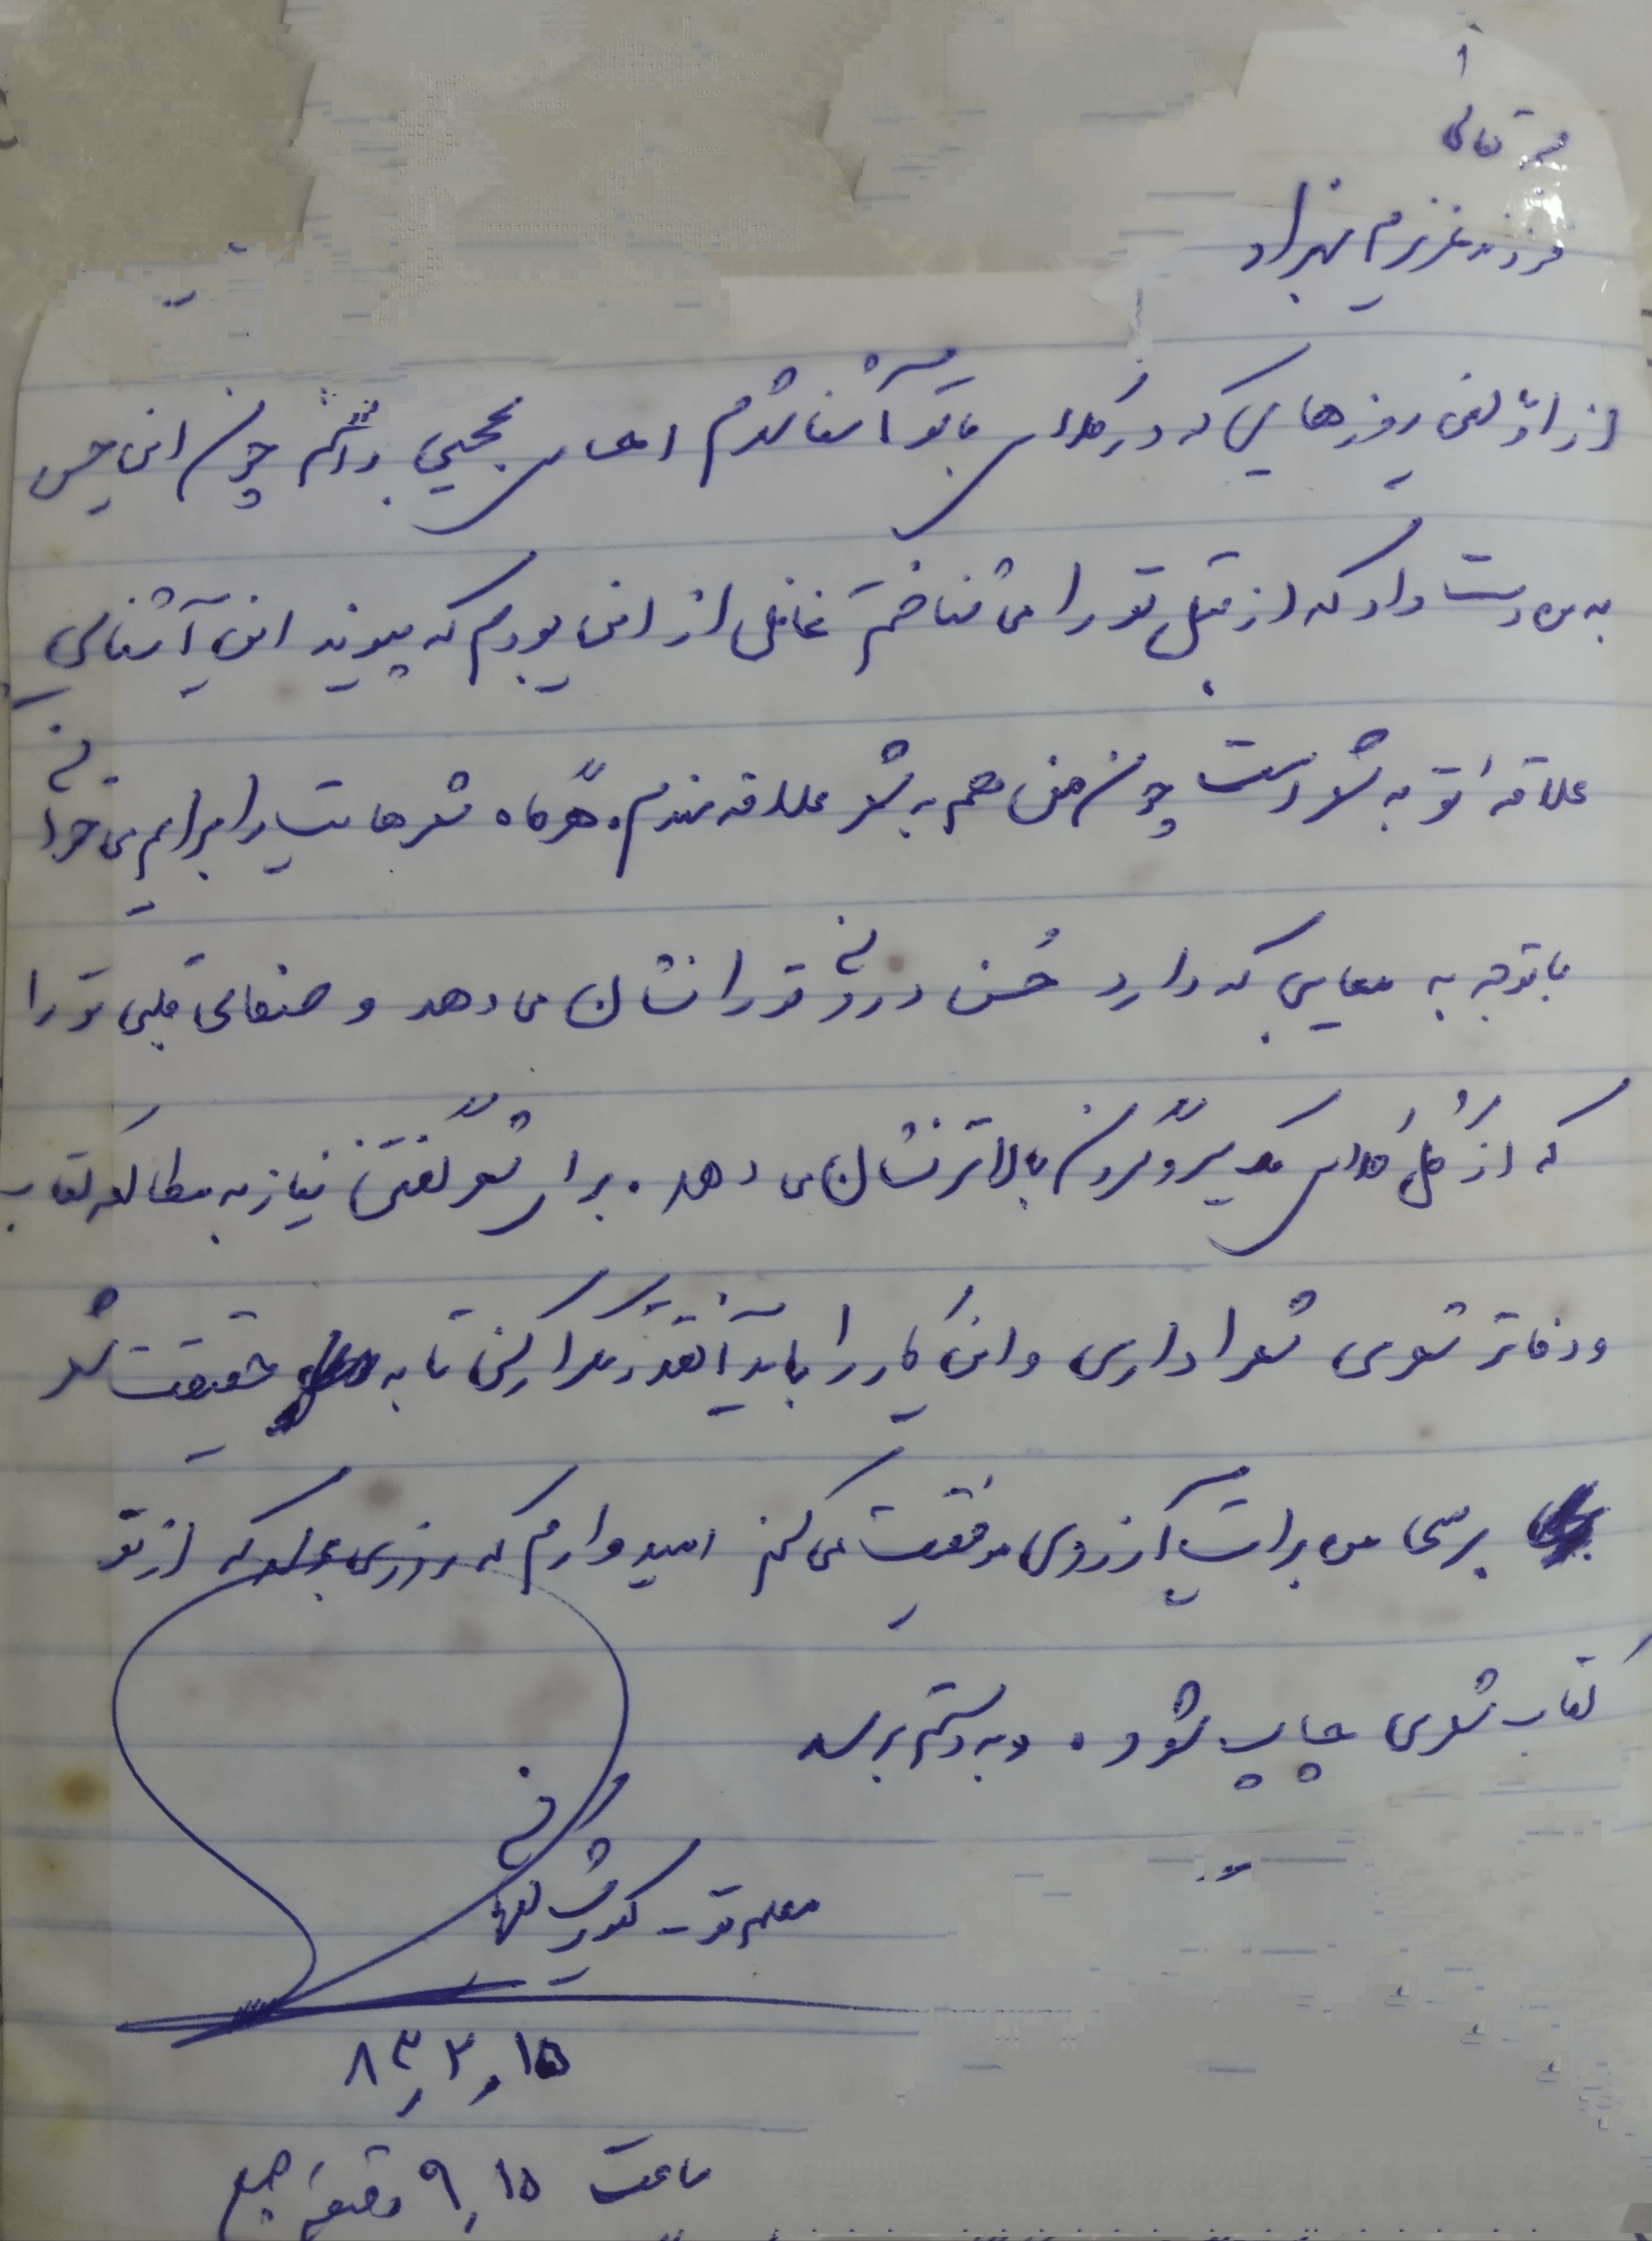 تعالی
فرزند عزیزم بهزاد
از اوّلین روزهایی که در کلاس با تو آشنا شدم احساس عجیبی داشتم چون این حس
به من دست داد که از قبل تو را می شناختم غافل از این بودم که پیوند این آشنایی
علاقهٔ تو به شعر است چون من هم به شعر علاقه مندم. هرگاه شعرهایت را برایم می خوانی
با توجه به معنایی که دارد حُسن درونی تو را نشان می دهد و صفای قلبی تو را
که از گل کلاس یک سر و گردن بالاتر نشان می دهد. برای شعر گفتن نیاز به مطالعه کتاب
و دفاتر شعری شعرا داری و این کار را باید آنقدر تکرار کنی تا به حقیقت شعر
برسی من برایت آرزوی موفقیت می کنم امیدوارم که روزی برسد که از تو
کتاب شعری چاپ شود و به دستم برسد
معلم تو - کورش
۸۳٫۲٫۱۵
ساعت ۹٫۱۵ دقیقهٔ صبح